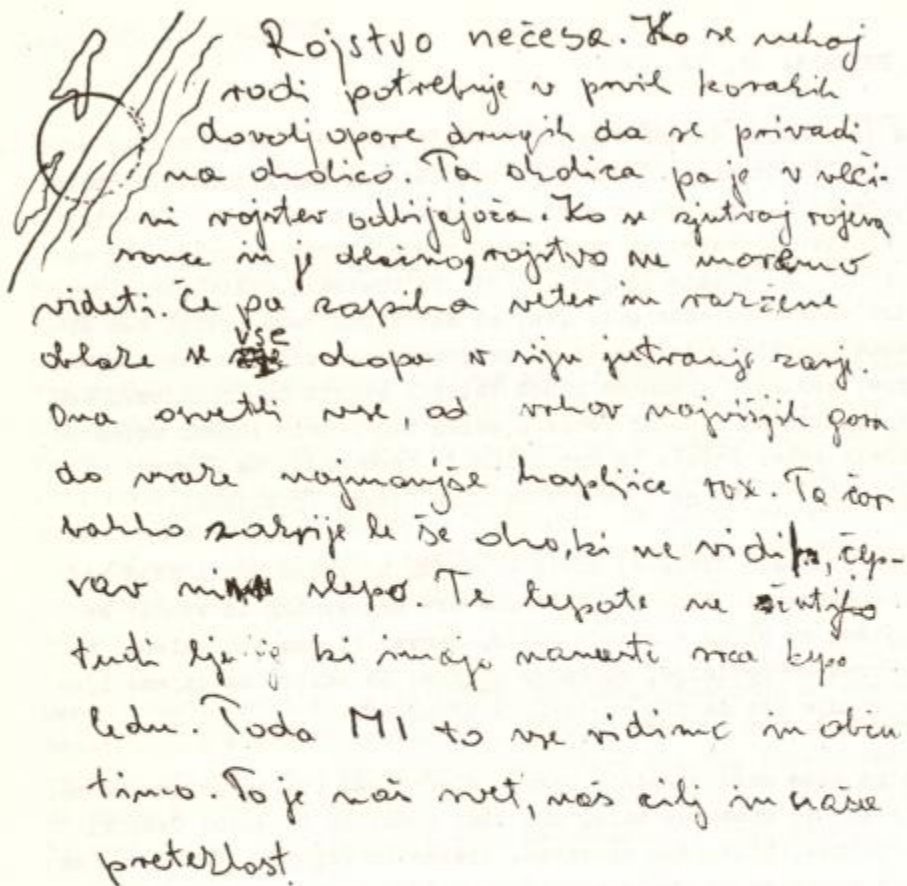 Rojstvo nečesa. Ko se nekaj
rodi potrebuje v prvih korakih
dovolj opore drugih da se privadi
na okolico. Ta okolica pa je v veči-
ni rojstev odbijajoča. Ko se zjutraj rojeva
sonce in je oblačno, rojstvo ne moremo
videti. Če pa zapiha veter in razžene
oblake se vse okopa v siju jutranje zarje.
Ona osvetli vse, od vrhov najvišjih gora
do vsake najmanjše kapljice rose. Ta čar
lahko zakrije le še oko, ki ne vidi, čep-
rav ni slepo. Te lepote ne čutijo
tudi ljudje ki imajo namesto srca kepo
ledu. Toda MI to vse vidimo in obču
timo. To je naš svet, naš cilj in naša
preteklost.